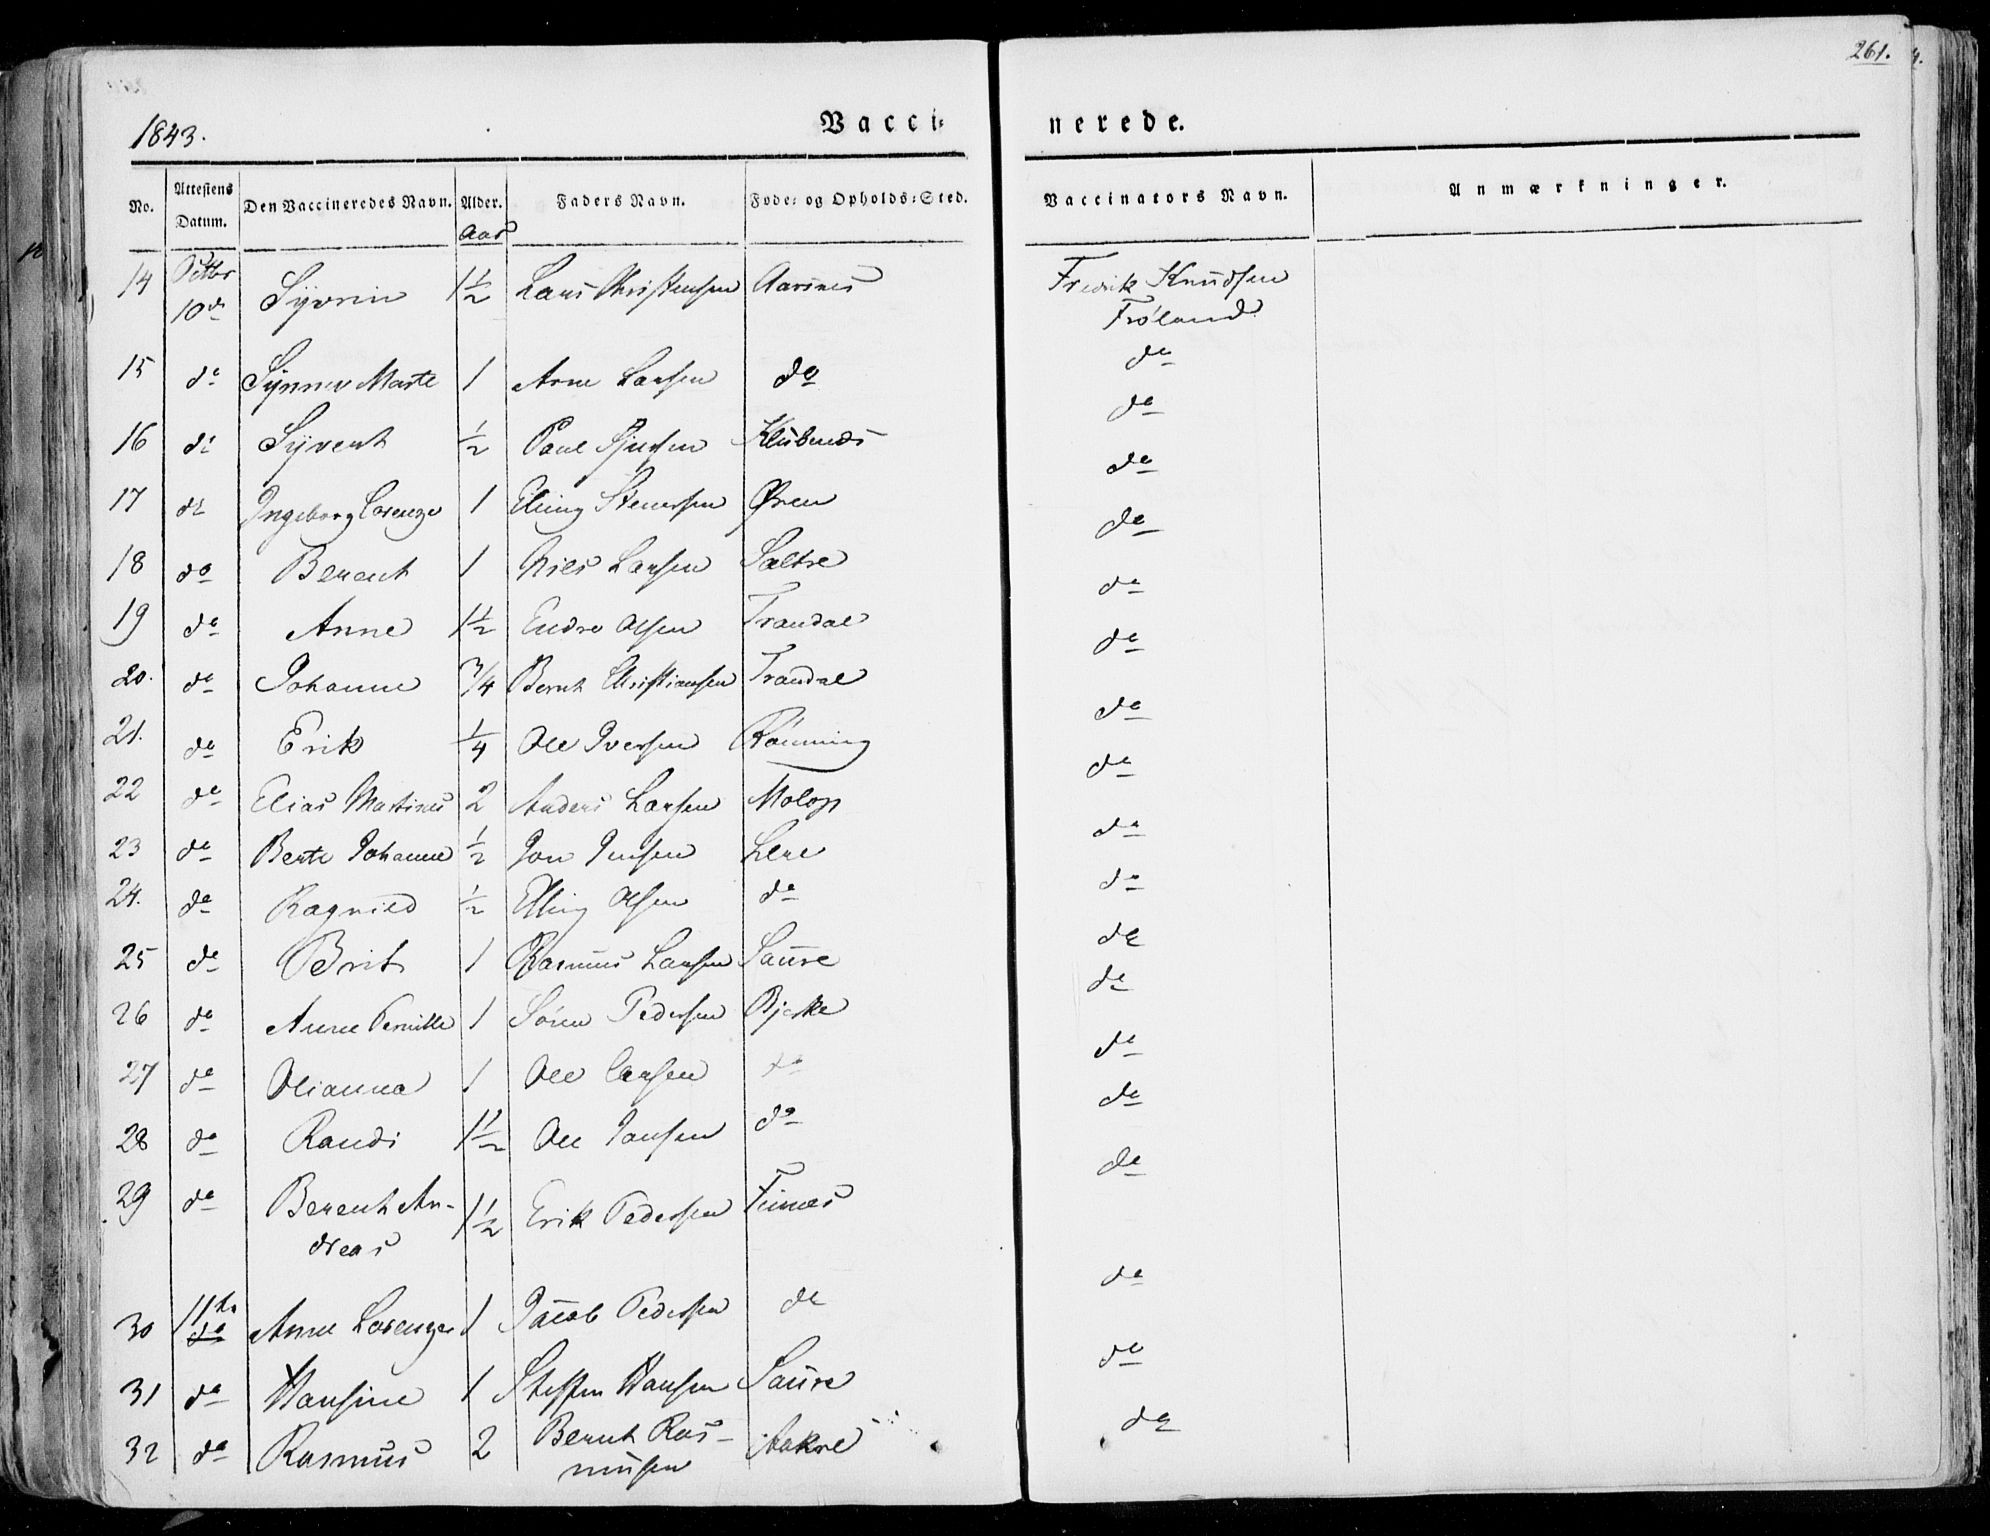 261.
1843.
Vacci- nerede.
No. Attestens Datum. Den Vaccineredes Navn. Alder. Faders Navn. Føde- og Opholds-Sted. Vaccinators Navn. Anmærkninger.
Aar
14 Octbr 10de Syvrin 1½ Lars Christensen Aarsnes Fredrik Knudsen Frøland
15 do Synnev Marte 1 Arne Larsen do do
16 do Syvert ½ Paul Klubnes do
17 do Ingeborg Lorenze 1 Elling Stenersen Øren do
18 do Berent 1 Niels Larsen Sætre do
19 do Anne 1½ Endre Olsen Trandal do
20. do Johanne 3/4 Bernt Christiansen Trandal do
21. do Erik ¼ Ole Iversen Rønning do
22 do Elias Martinus 2 Anders Larsen Molop do
23 do Berte Johanne ½ Jon Jensen Lere do
24. do Ragnild ½ Elling Olsen do do
25 do Brit 1 Rasmus Larsen Saure do
26 do Anne Pernille 1 Søren Pedersen Bjerke do
27 do Olianna 1 Ole Larsen do do
28 do Randi 1½ Ole Jansen do do
29 do Berent An-
dreas 1½ Erik Pedersen Finnes do
30 11te do Anne Lorenze 1 Jacob Pedersen do do
31 do Hansine 1 Steffen Hansen Saure do
32 do Rasmus 2 Bernt Ras-
musen Aakre do